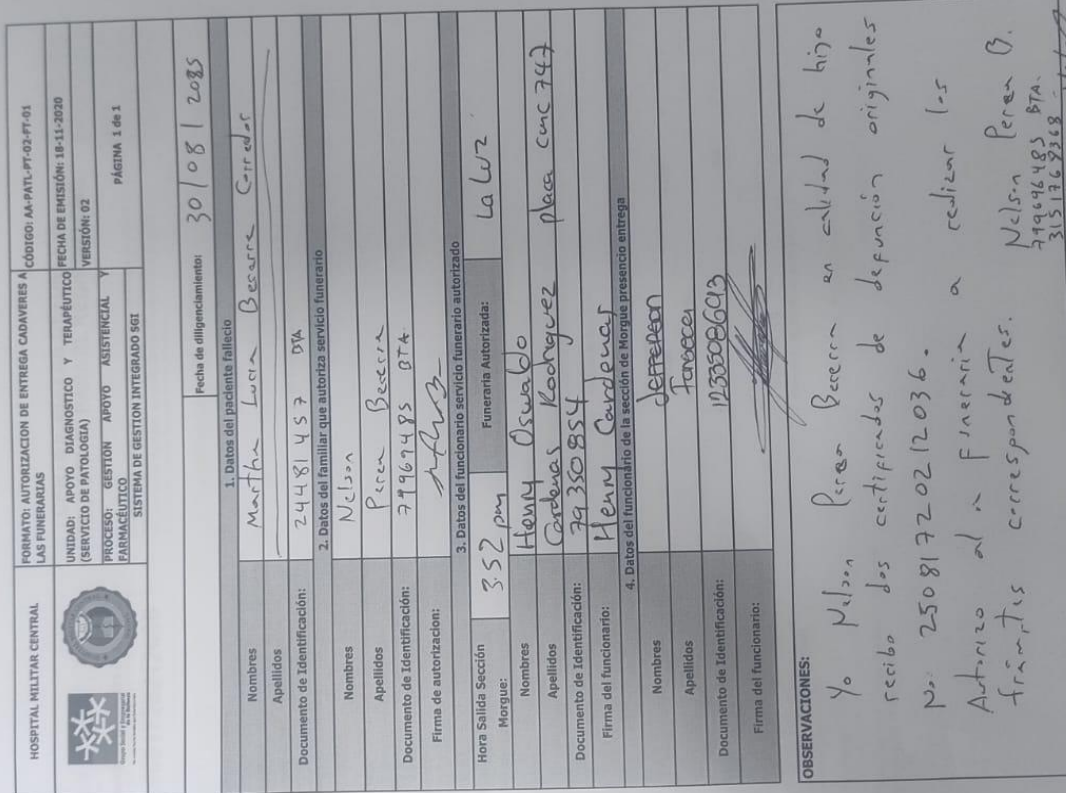 HOSPITAL MILITAR CENTRAL
FORMATO: AUTORIZACION DE ENTREGA CADAVERES A
LAS FUNERARIAS
CÓDIGO: AA-PATL-PT-02-FT-01
UNIDAD: APOYO DIAGNOSTICO Y TERAPÉUTICO
(SERVICIO DE PATOLOGIA)
FECHA DE EMISIÓN: 18-11-2020
VERSIÓN: 02
PROCESO: GESTIÓN APOYO ASISTENCIAL Y
FARMACÉUTICO
PÁGINA 1 de 1
SISTEMA DE GESTION INTEGRADO SGI
Fecha de diligenciamiento: 30/08/2025
1. Datos del paciente fallecio
Nombres Martha Lucia Becerra Corredor
Apellidos
Documento de Identificación: 24481457 BTA
2. Datos del familiar que autoriza servicio funerario
Nombres Nelson
Apellidos Perea Becerra
Documento de Identificación: 79969485 BTA.
Firma de autorizacion:
3. Datos del funcionario servicio funerario autorizado
Hora Salida Sección
Morgue: 3:52 pm Funeraria Autorizada: La Luz
Nombres Henry Oswaldo
Apellidos Cardenas Rodriguez placa cmc 747
Documento de Identificación: 79350854
Firma del funcionario: Henry Cardenas
4. Datos del funcionario de la sección de Morgue presencio entrega
Nombres Jefferson
Apellidos Fonseca
Documento de Identificación: 1233508693
Firma del funcionario:
OBSERVACIONES:
Yo Nelson Perea Becerra en calidad de hijo
recibo dos certificados de defunción originales
No: 25081720212036.
Autorizo a la Funeraria a realizar los
tramites correspondientes.
Nelson Perea B.
79969485 BTA.
3151769368